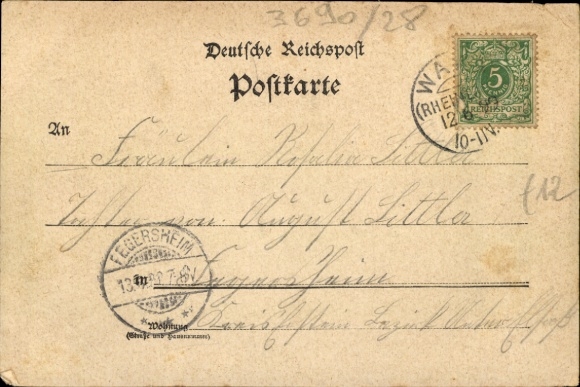 3690/28
Deutsche Reichspost
Postkarte
5
REICHSPOST
WA
(RHEIN
12 6
10-11V.
An
Fräulein Rosalia Littler
Tochter von August Littler
(12
FEGERSHEIM
13 7-8V
in Fegersheim
Kreis Erstein Bezirk
Wohnung
(Straße und Hausnummer)